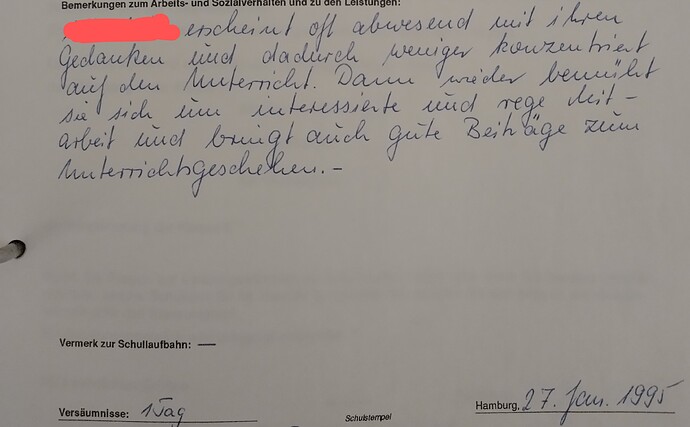 Bemerkungen zum Arbeits- und Sozialverhalten und zu den Leistungen:
erscheint oft abwesend mit ihren
Gedanken und dadurch weniger konzentriert
auf den Unterricht. Dann wieder bemüht
sie sich um interessierte und rege Mit-
arbeit und bringt auch gute Beiträge zum
Unterrichtsgeschehen. –
Vermerk zur Schullaufbahn: —
Versäumnisse: 1 Tag
Schulstempel
Hamburg, 27. Jan. 1995